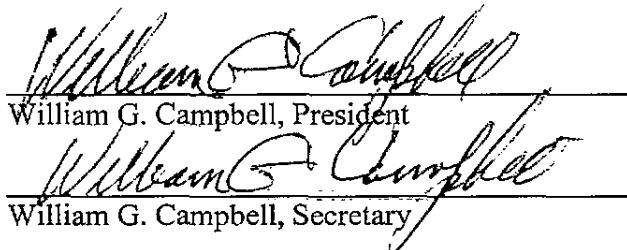 William G Campbell
William G. Campbell, President
William G Campbell
William G. Campbell, Secretary